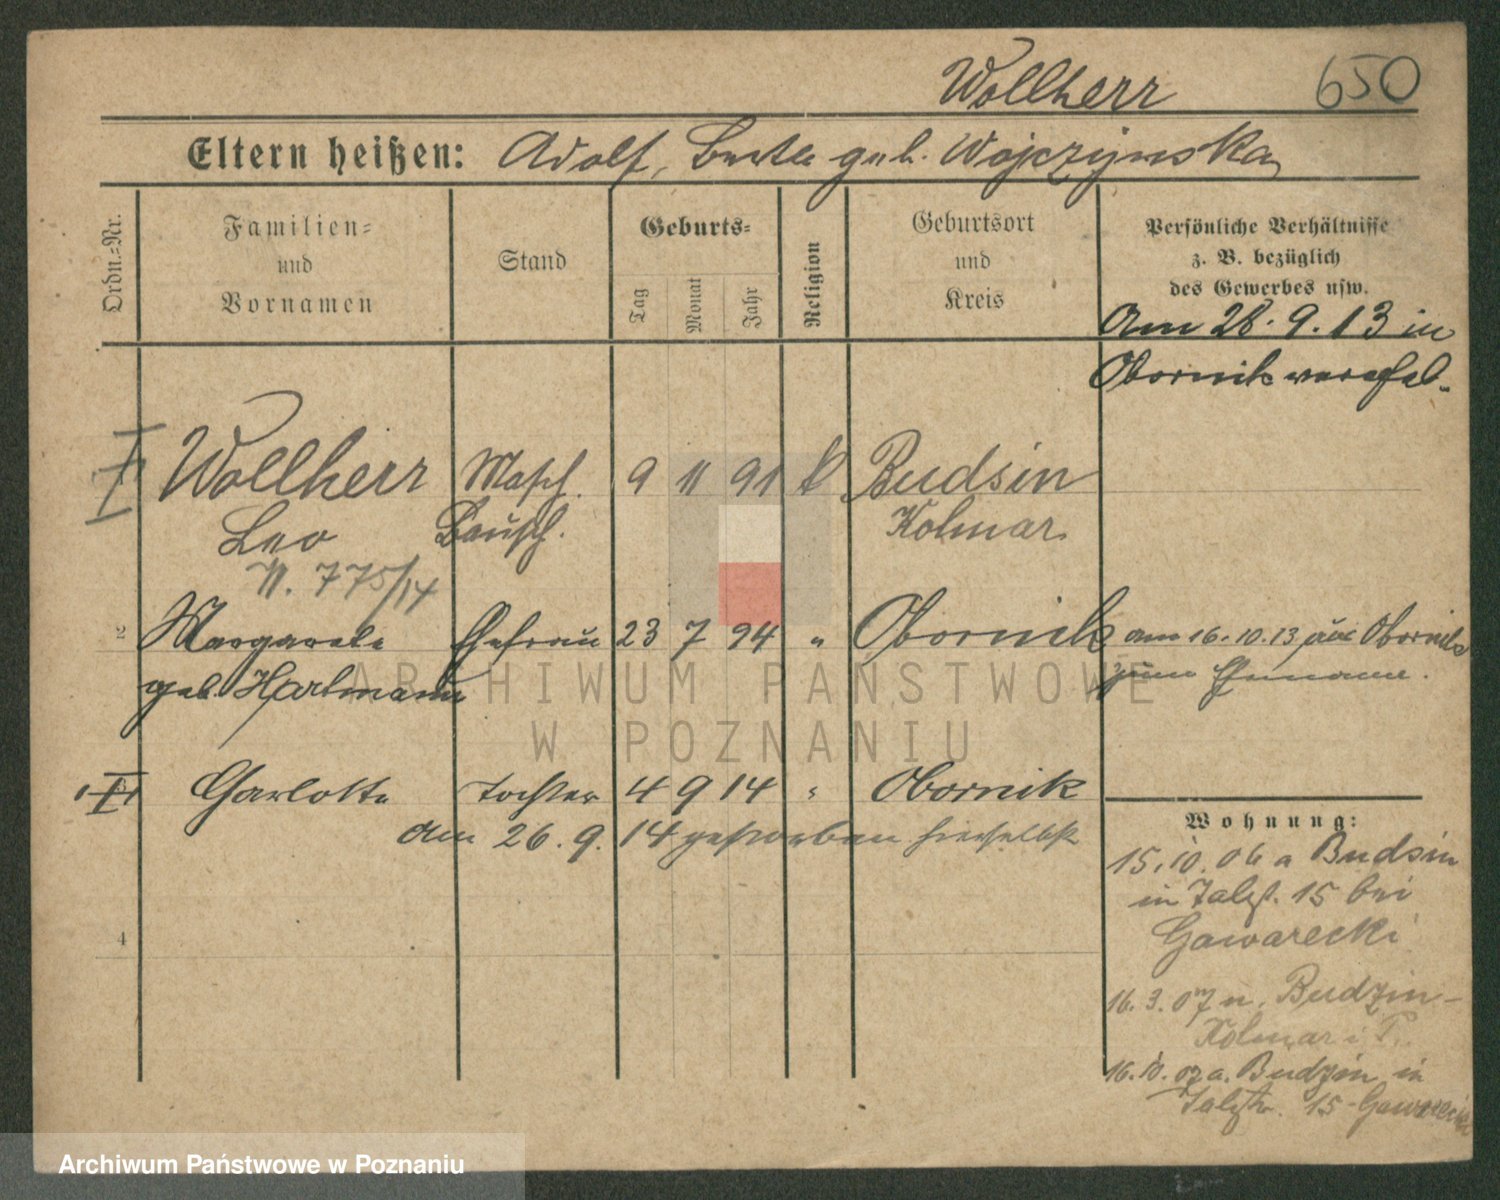 Wollherr 650
Eltern heißen: Adolf, Berta geb. Wojczynska
Ordn.-Nr.
Familien-
und
Vornamen
Stand
Geburts-
Tag
Monat
Jahr
Religion
Geburtsort
und
Kreis
Persönliche Verhältnisse
z. B. bezüglich
des Gewerbes usw.
Am 28. 9. 13 in
Obornik verehel.
I Wollherr Masch. 9 11 91 k Budsin
Leo Bausch. Kolmar
N. 775/14
2 Margarete Ehefrau 23 7 94 " Obornik am 16.10.13 aus Obornik
geb. Hartmann zum Ehemann.
Charlotte Tochter 4 9 14 " Obornik
am 26. 9. 14 gestorben hierselbst
4
Wohnung:
15.10.06 a Budsin
in 15 bei
Gawarecki
16.3.07 n. Budzin-
Kolmar i P.
16.10.07 a. Budzin in
15 - Gawarecki
ARCHIWUM PAŃSTWOWE
W POZNANIU
Archiwum Państwowe w Poznaniu